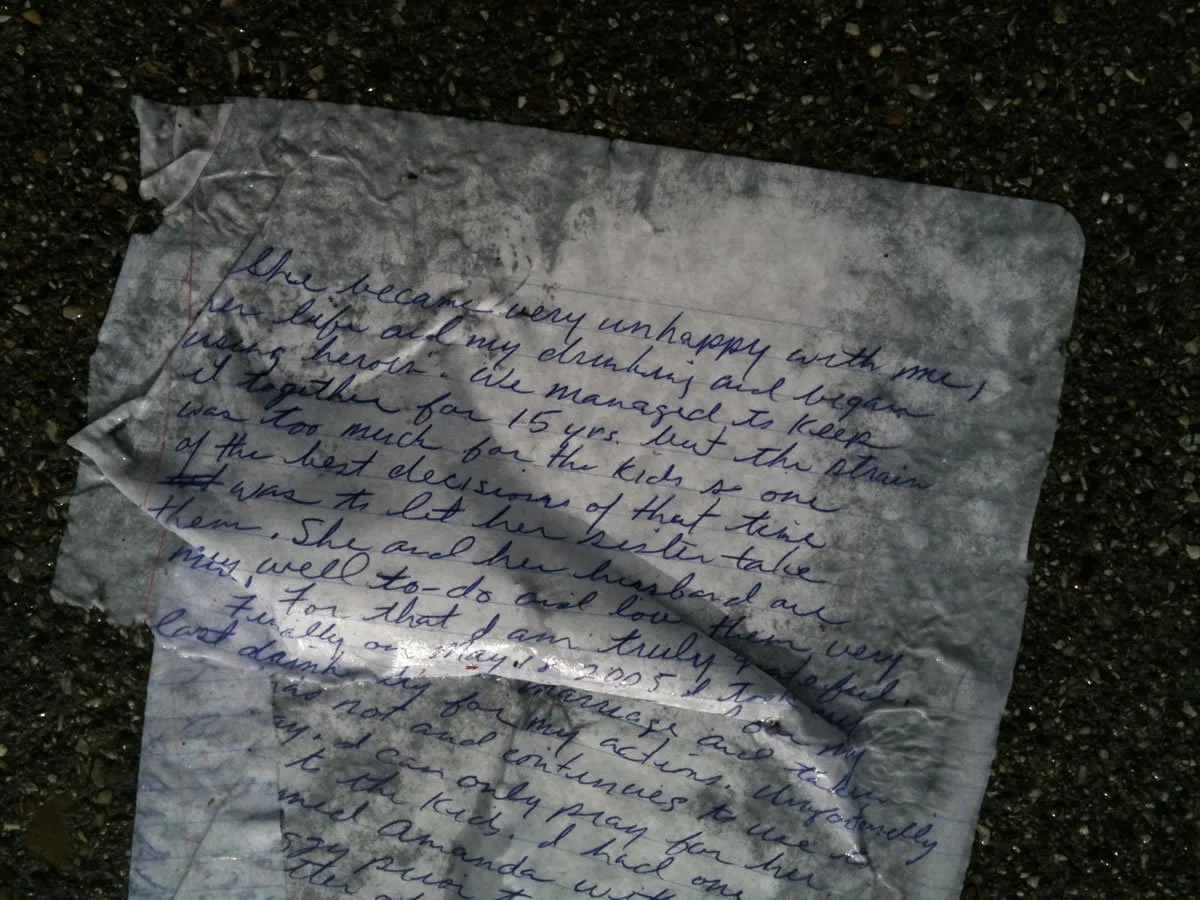 She became very unhappy with me,
her life and my drinking and began
using heroin. We managed to keep
it together for 15 yrs. but the strain
was too much for the kids so one
of the best decisions of that time
was to let her sister take
them. She and her husband are
very well to-do and love them very
For that I am truly grateful.
Finally on May 2005 I took my
last drink
marriage and
for my actions. Unfortunately
not and continues to use
I can only pray for her
to the kids. I had one
Amanda with
prior to